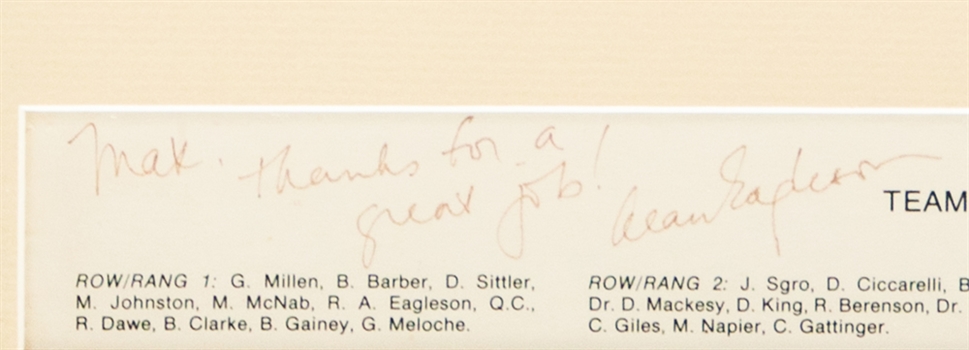 Max. thanks for a
great job! Alan Eagleson
TEAM
ROW/RANG 1: G. Millen, B. Barber, D. Sittler,
M. Johnston, M. McNab, R. A. Eagleson, Q.C.,
R. Dawe, B. Clarke, B. Gainey, G. Meloche.
ROW/RANG 2: J. Sgro, D. Ciccarelli, B
Dr. D. Mackesy, D. King, R. Berenson, Dr.
C. Giles, M. Napier, C. Gattinger.